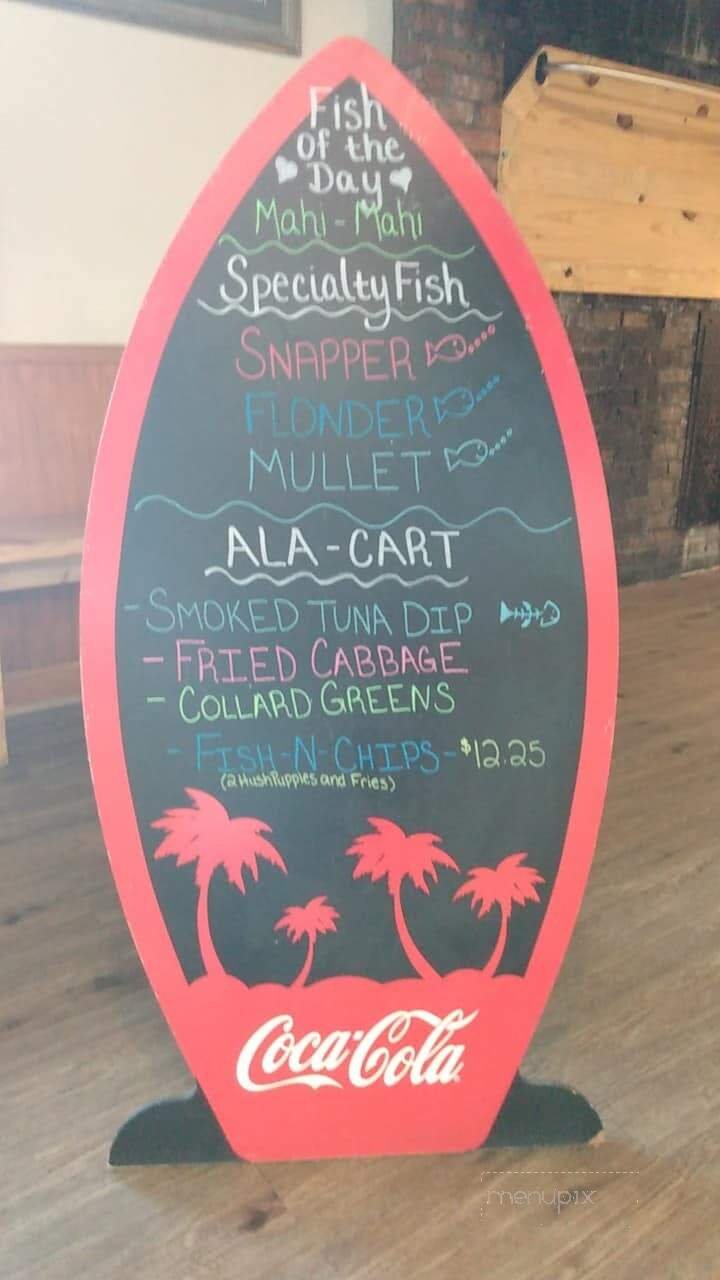 Fish
Of the
Day
Mahi-Mahi
Specialty Fish
SNAPPER
FLONDER
MULLET
ALA-CART
- SMOKED TUNA DIP
- FRIED CABBAGE
- COLLARD GREENS
- FISH-N-CHIPS- $12.25
(2 HushPuppies and Fries)
Coca-Cola
menupix